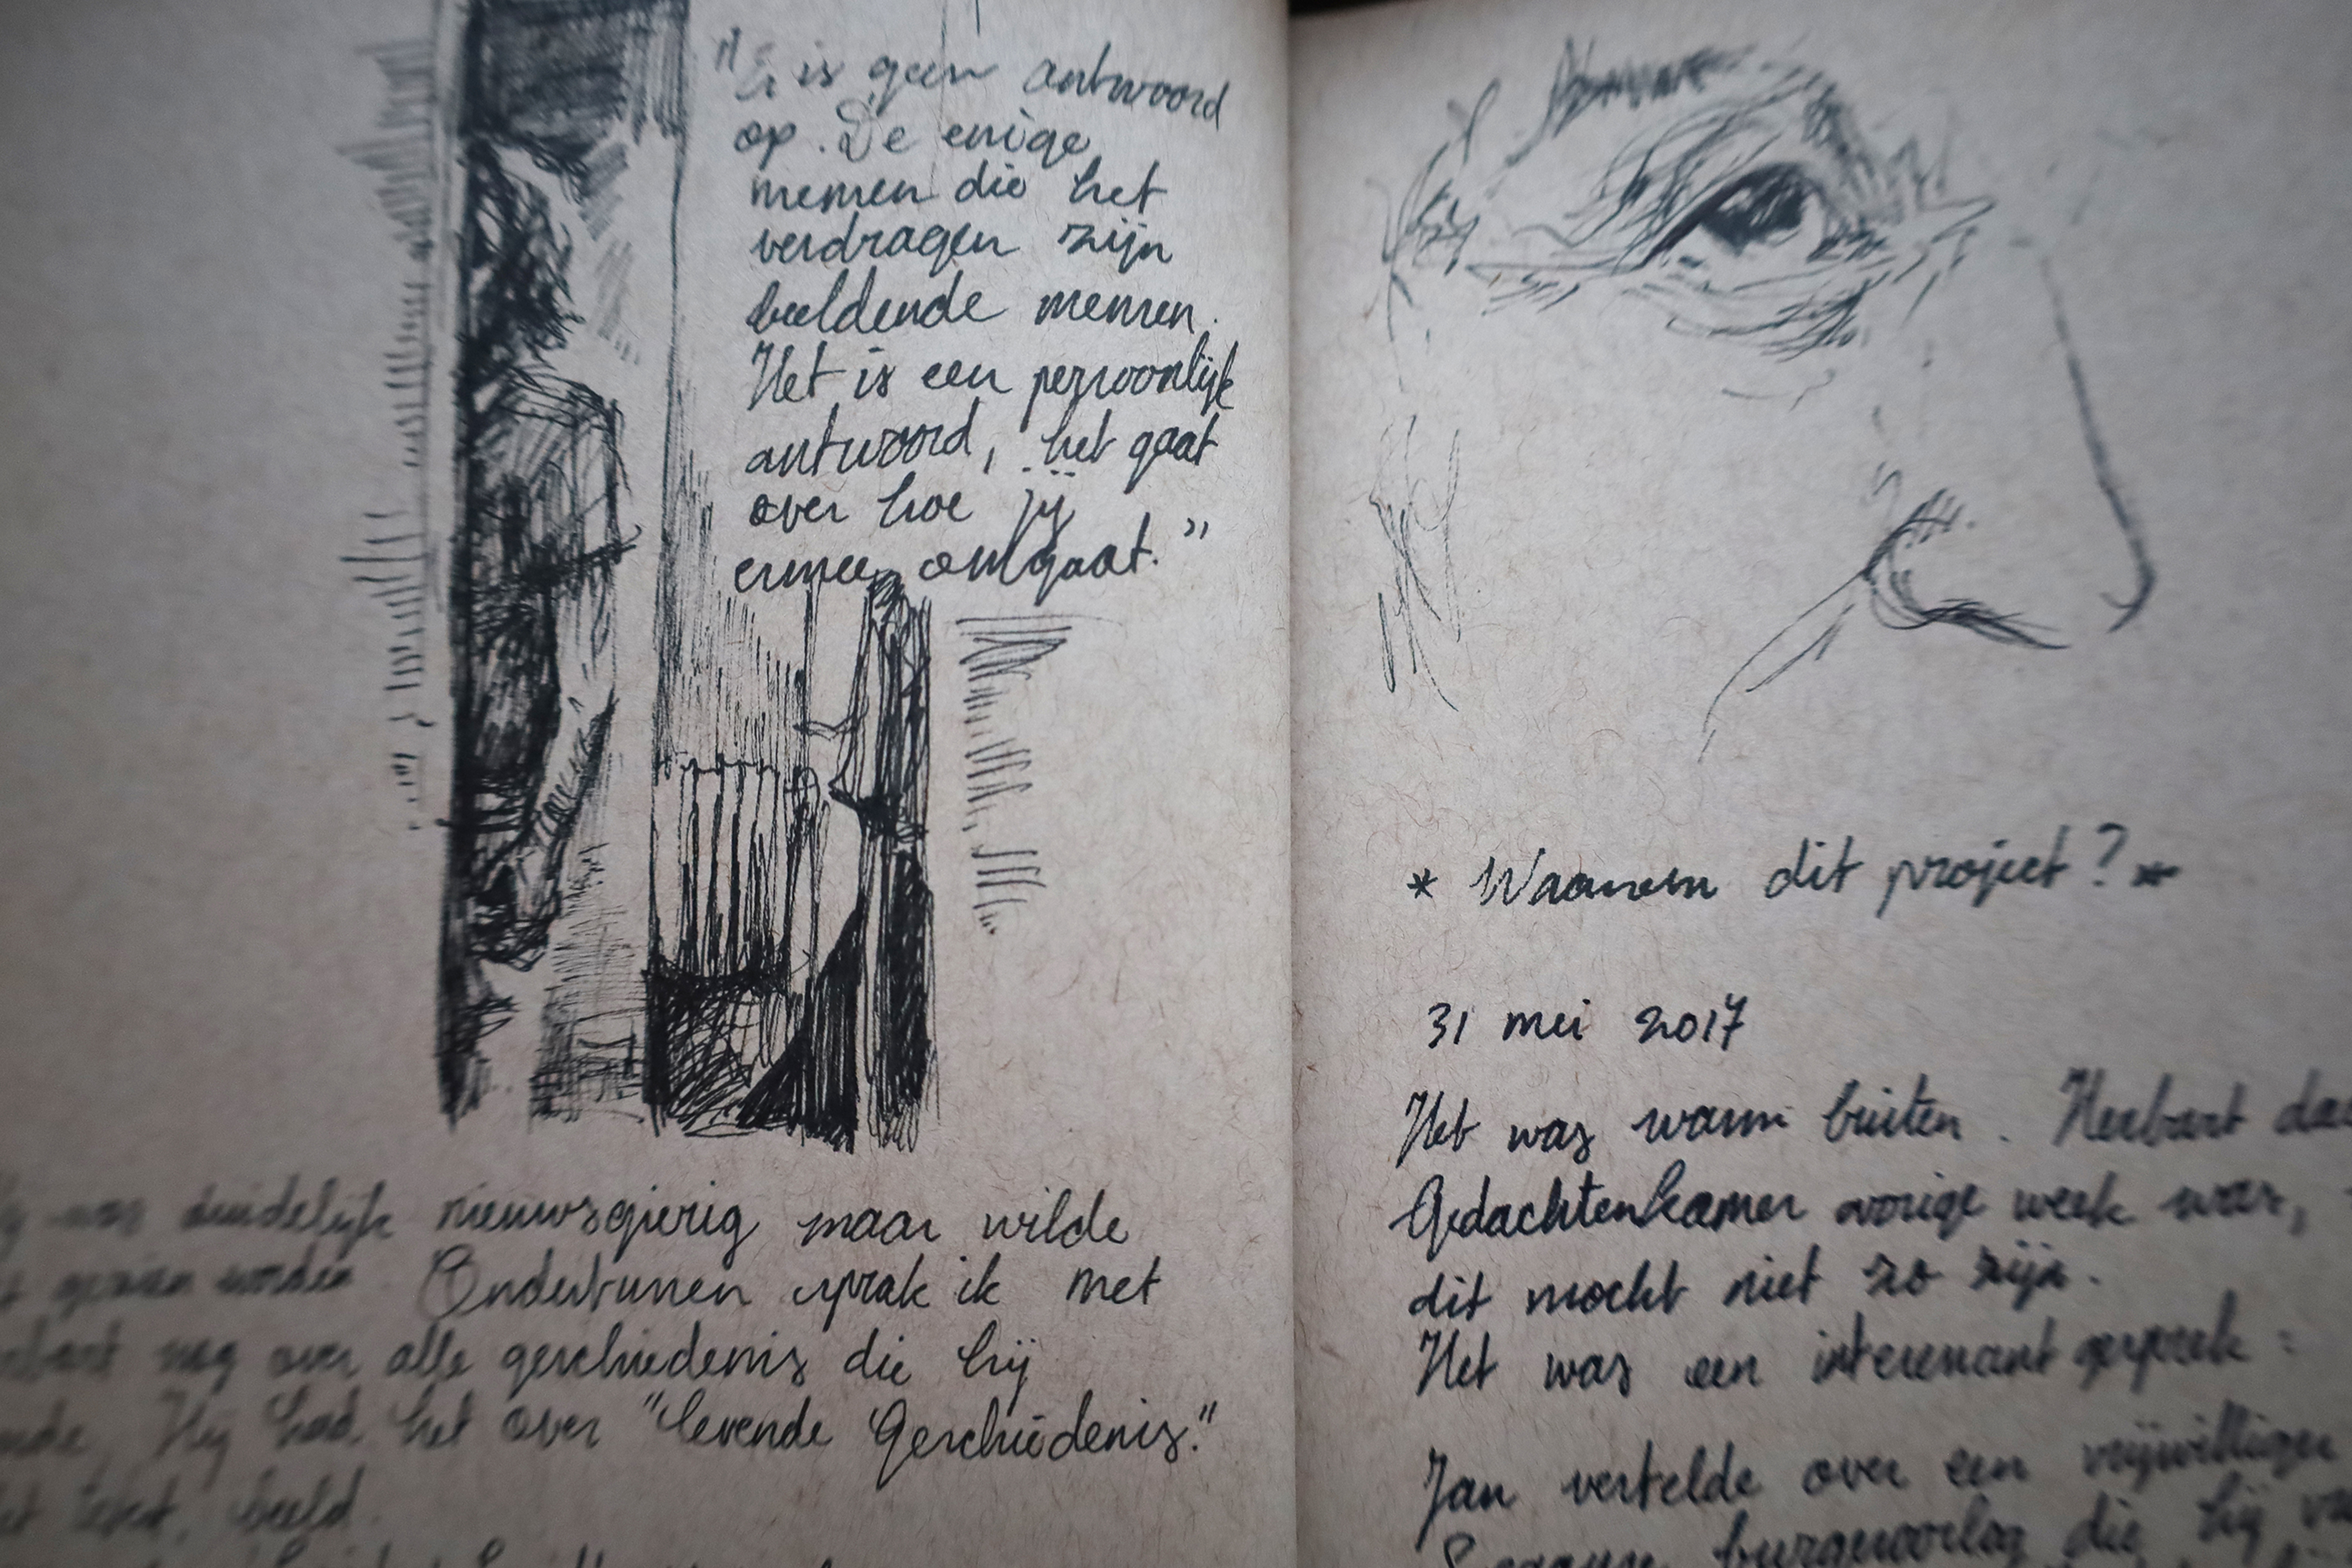 "Er is geen antwoord
op. De enige
mensen die het
verdragen zijn
beeldende mensen.
Het is een persoonlijk
antwoord, het gaat
over hoe jij
ermee omgaat."
was duidelijk nieuwsgierig maar wilde
worden Ondertussen sprak ik met
nog over alle geschiedenis die hij
Hij had het over "levende Geschiedenis."
beeld.
* Waarom dit project? *
31 mei 2017
Het was warm buiten. Herbart
Gedachtenkamer vorige week was,
dit mocht niet zo zijn.
Het was een interessant gesprek:
Jan vertelde over een vrijwilliger
burgeroorlog die hij